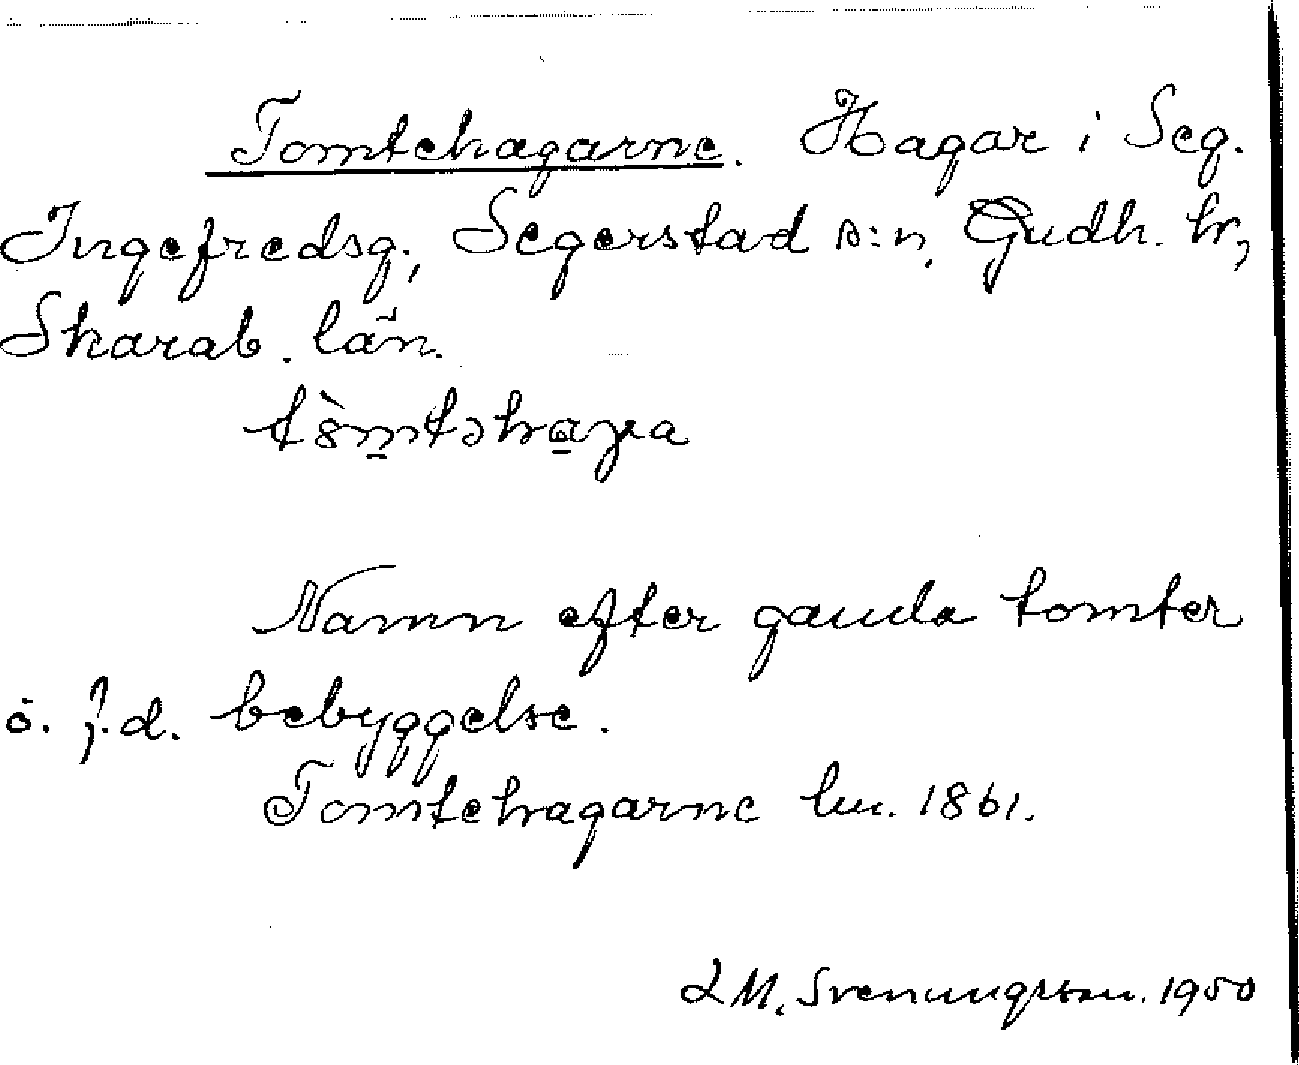 Tomtehagarne. Hagar i Seg.
Ingefredsg., Segerstad s:n, Gudh. hr,
Skarab. län.
Namn efter gamla tomter
o. f.d. bebyggelse.
Tomtehagarne lm. 1861.
L M. Svenungsson. 1950